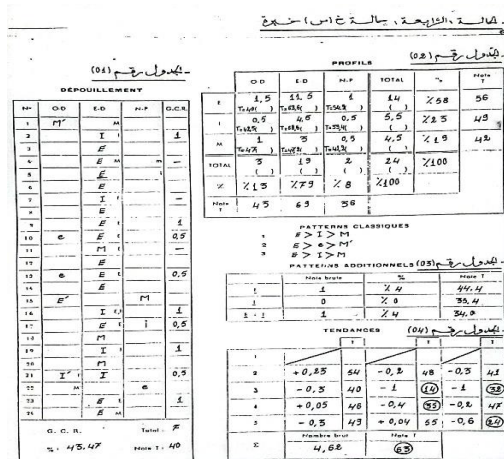 الحالة الرابعة: حالة خ (س) خيرة
الجدول رقم (01)
DÉPOUILLEMENT
N° O-D E-D N-P G.C.R.
1 M' M
2 I 1
3 E
4 E M m —
5 E
6 E
7 I —
8 E
9 E 1
10 e E 0,5
11 M —
12 E
13 e E 0,5
14 E
15 E' M
16 I 1
17 E i 0,5
18 M
19 I 1
20 M
21 I' I 0,5
22 M e
23 E 1
24 E M
G. C. R. Total : 7
% : 43,47 Note T : 40
الجدول رقم (02)
PROFILS
O·D E·D N·P TOTAL % Note T
E 1,5 11,5 1 14 %58 56
I 0,5 4,5 0,5 5,5 %23 49
M 1 3 0,5 4,5 %19 42
TOTAL 3 19 2 24 %100
% %13 %79 %8 %100
Note T 45 69 36
PATTERNS CLASSIQUES
1 E > I > M
2 E > e > M'
3 E > I > M
PATTERNS ADDITIONNELS الجدول رقم (03)
Note brute % Note T
1 %4 44.4
0 %0 39,4
1 %4 34,0
TENDANCES الجدول رقم (04)
1
2 +0,23 54 -0,2 48 -0,3 41
3 -0,3 40 -1 14 -1 38
4 +0,05 46 -0,4 35 -0,2 47
5 -0,3 43 +0,04 55 -0,6 24
Σ Nombre brut 4,62 Note T 63